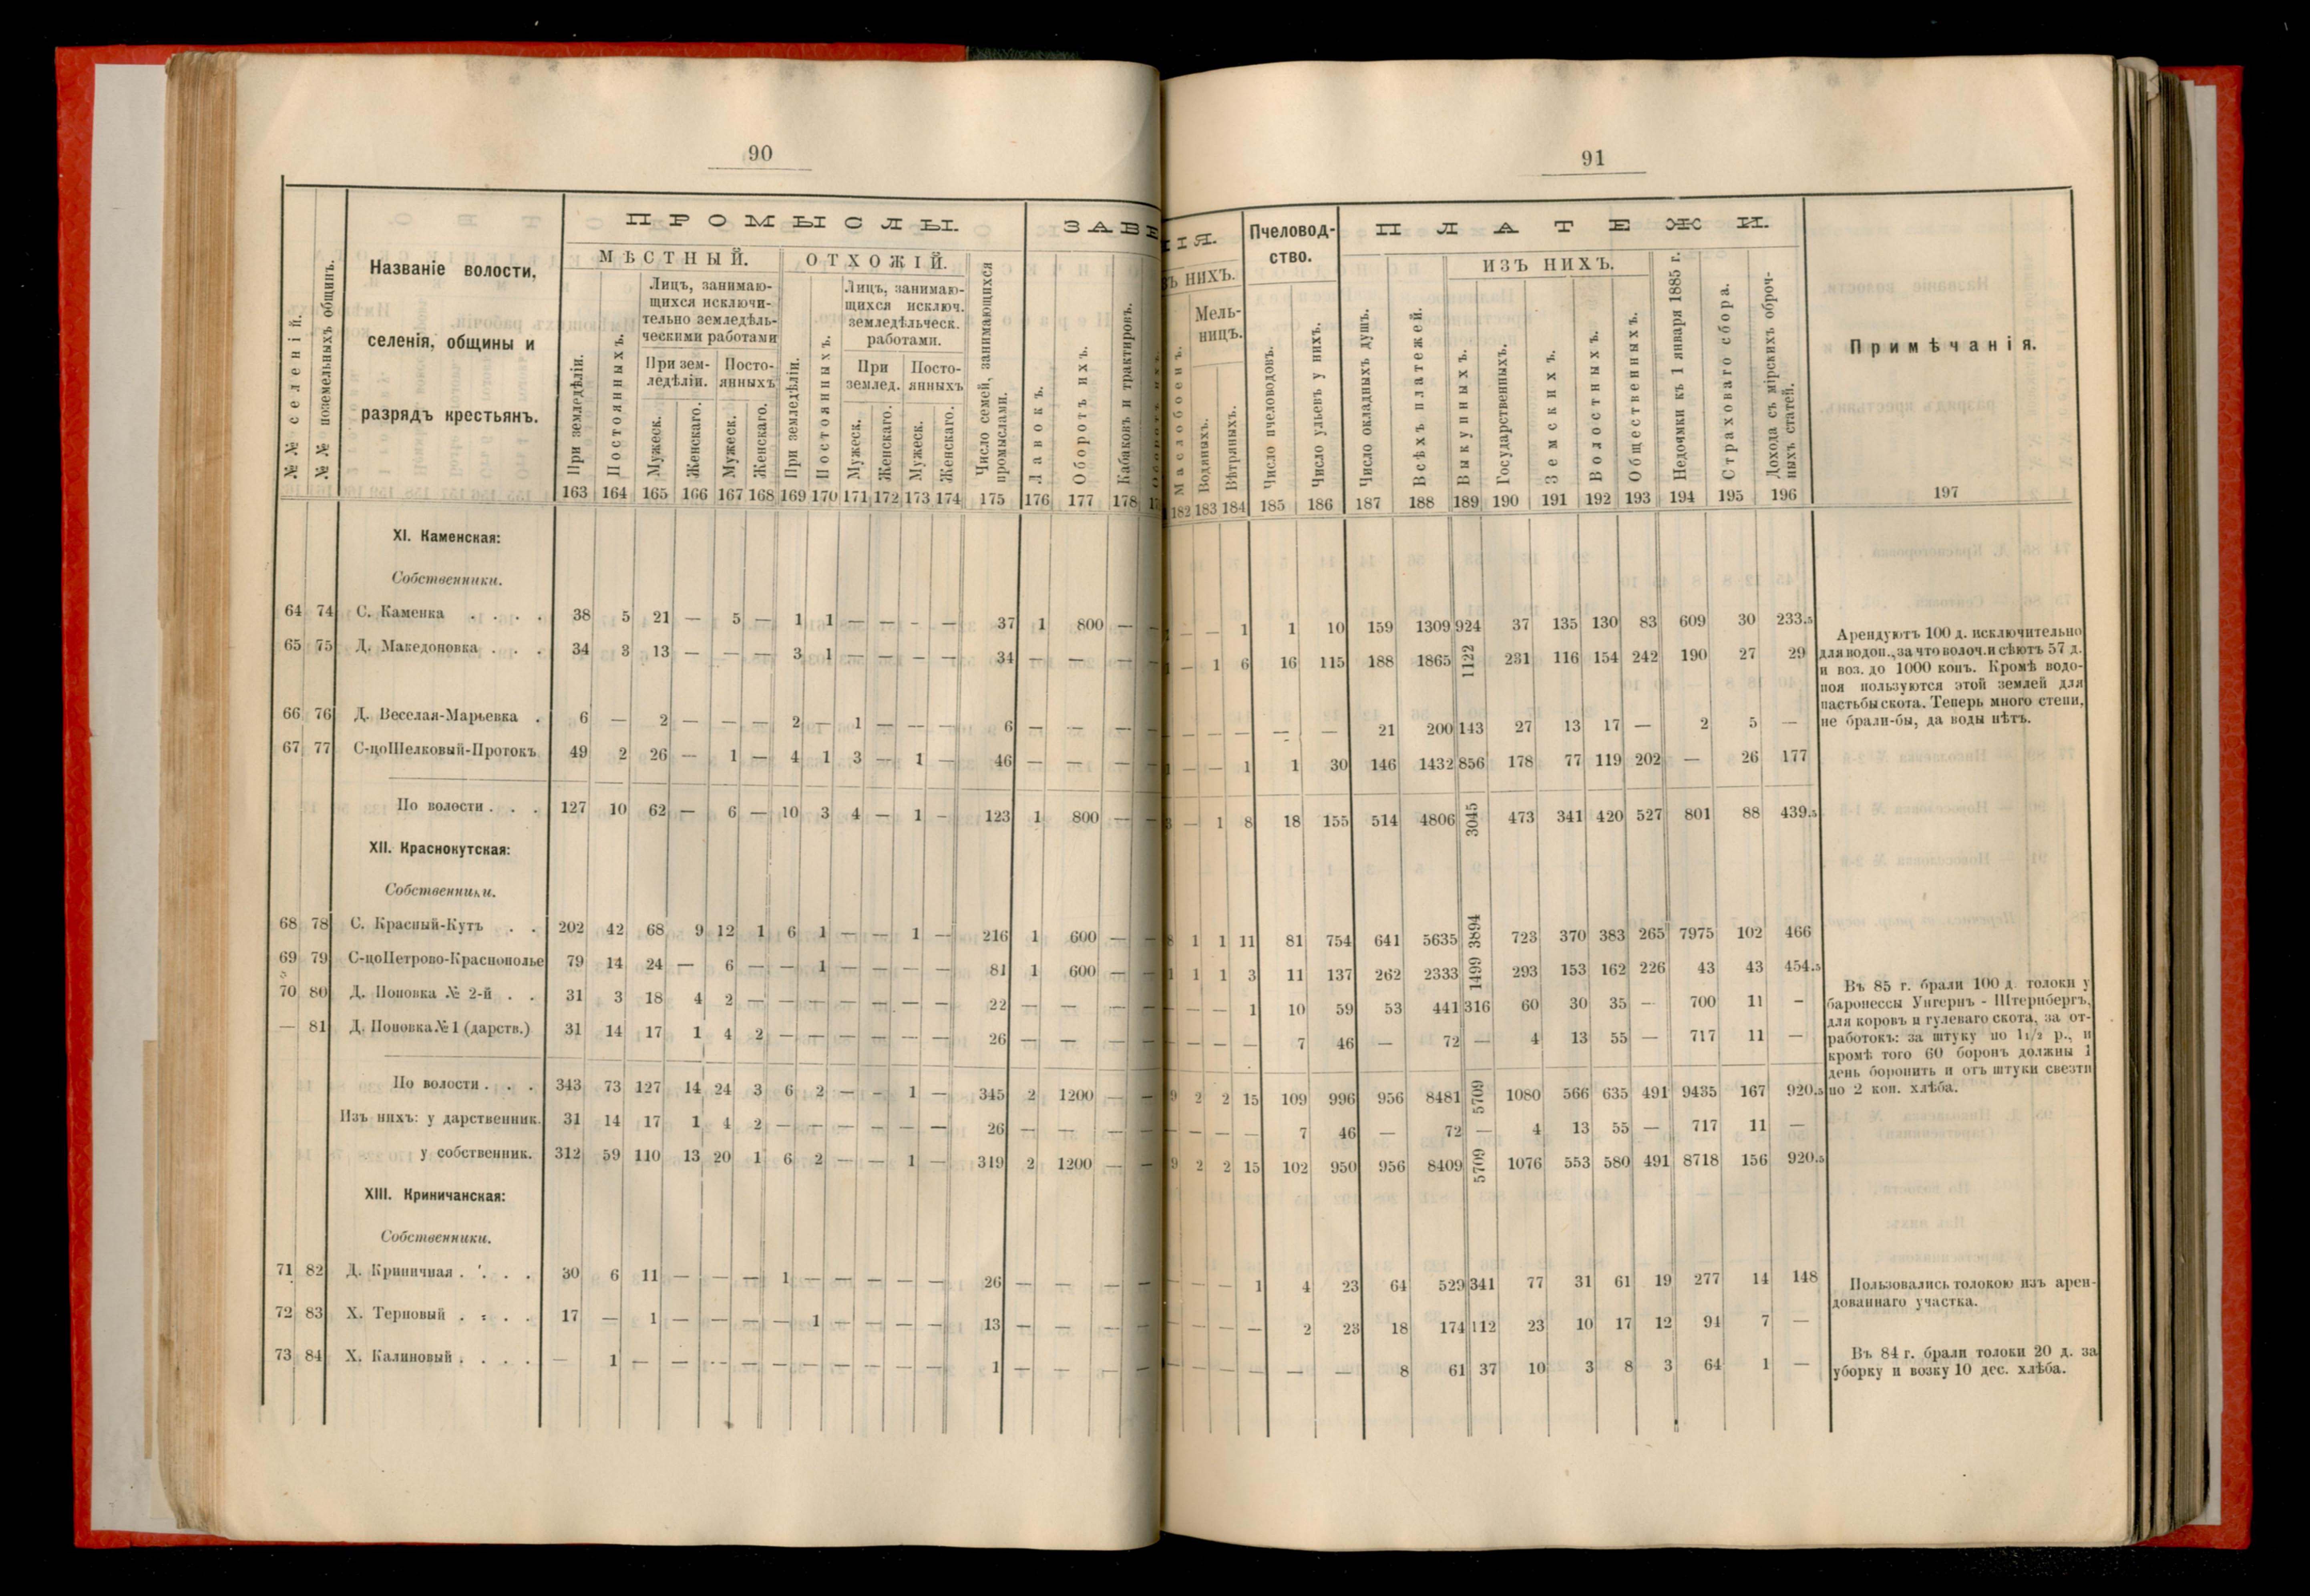 90
П Р О М Ы С Л Ы.
МѢСТНЫЙ.
ОТХОЖІЙ.
№№ селеній.
№№ поземельныхъ общинъ.
Названіе волости,
селенія, общины и
разрядъ крестьянъ.
При земледѣліи.
Постоянныхъ.
Лицъ, занимаю-
щихся исключи-
тельно земледѣль-
ческими работами
При зем-
ледѣліи.
Посто-
янныхъ
Мужеск.
Женскаго.
Мужеск.
Женскаго.
При земледѣліи.
Постоянныхъ.
Лицъ, занимаю-
щихся исключ.
земледѣльческ.
работами.
При
землед.
Посто-
янныхъ
Мужеск.
Женскаго.
Мужеск.
Женскаго.
Число семей, занимающихся
промыслами.
Лавокъ.
Оборотъ ихъ.
Кабаковъ и трактировъ.
163 164 165 166 167 168 169 170 171 172 173 174 175 176 177 178
XI. Каменская:
Собственники.
64 74 С. Каменка . . . . 38 5 21 — 5 — 1 1 — — — — 37 1 800 — —
65 75 Д. Македоновка . . . 34 3 13 — — — 3 1 — — — — 34 — — — —
66 76 Д. Веселая-Марьевка . 6 — 2 — — — 2 — 1 — — — 6 — — — —
67 77 С-цо Шелковый-Протокъ 49 2 26 — 1 — 4 1 3 — 1 — 46 — — — —
По волости . . . 127 10 62 — 6 — 10 3 4 — 1 — 123 1 800 — —
XII. Краснокутская:
Собственники.
68 78 С. Красный-Кутъ . . 202 42 68 9 12 1 6 1 — — 1 — 216 1 600 — —
69 79 С-цо Петрово-Краснополье 79 14 24 — 6 — — 1 — — — — 81 1 600 — —
70 80 Д. Поповка № 2-й . . 31 3 18 4 2 — — — — — — — 22 — — — —
— 81 Д. Поповка № 1 (дарств.) 31 14 17 1 4 2 — — — — — — 26 — — — —
По волости . . . 343 73 127 14 24 3 6 2 — — 1 — 345 2 1200 — —
Изъ нихъ: у дарственник. 31 14 17 1 4 2 — — — — — — 26 — — — —
у собственник. 312 59 110 13 20 1 6 2 — — 1 — 319 2 1200 — —
XIII. Криничанская:
Собственники.
71 82 Д. Криничная . . . . 30 6 11 — — — 1 — — — — — 26 — — — —
72 83 Х. Терновый . . . . 17 — 1 — — — — 1 — — — — 13 — — — —
73 84 Х. Калиновый . . . . — 1 — — — — — — — — — — 1 — — — —
91
Пчеловод-
ство.
П Л А Т Е Ж И.
ИЗЪ НИХЪ.
НИХЪ.
Мель-
ницъ.
Маслобоенъ.
Водяныхъ.
Вѣтряныхъ.
Число пчеловодовъ.
Число ульевъ у нихъ.
Число окладныхъ душъ.
Всѣхъ платежей.
Выкупныхъ.
Государственныхъ.
Земскихъ.
Волостныхъ.
Общественныхъ.
Недоимки къ 1 января 1885 г.
Страховаго сбора.
Дохода съ мірскихъ оброч-
ныхъ статей.
Примѣчанія.
182 183 184 185 186 187 188 189 190 191 192 193 194 195 196 197
— — 1 1 10 159 1309 924 37 135 130 83 609 30 233.5
— 1 6 16 115 188 1865 1122 231 116 154 242 190 27 29
— — — — — 21 200 143 27 13 17 — 2 5 —
— — 1 1 30 146 1432 856 178 77 119 202 — 26 177
— 1 8 18 155 514 4806 3045 473 341 420 527 801 88 439.5
Арендуютъ 100 д. исключительно
для водоп., за что волоч. и сѣютъ 57 д.
и воз. до 1000 копъ. Кромѣ водо-
поя пользуются этой землей для
пастьбы скота. Теперь много степи,
не брали-бы, да воды нѣтъ.
8 1 1 11 81 754 641 5635 3894 723 370 383 265 7975 102 466
1 1 1 3 11 137 262 2333 1499 293 153 162 226 43 43 454.5
— — — 1 10 59 53 441 316 60 30 35 — 700 11 —
— — — — 7 46 — 72 — 4 13 55 — 717 11 —
9 2 2 15 109 996 956 8481 5709 1080 566 635 491 9435 167 920.5
— — — — 7 46 — 72 — 4 13 55 — 717 11 —
9 2 2 15 102 950 956 8409 5709 1076 553 580 491 8718 156 920.5
Въ 85 г. брали 100 д. толоки у
баронессы Унгернъ - Штернбергъ,
для коровъ и гулеваго скота, за от-
работокъ: за штуку по 1 1/2 р., и
кромѣ того 60 боронъ должны 1
день боронить и отъ штуки свезти
по 2 коп. хлѣба.
— — — 1 4 23 64 529 341 77 31 61 19 277 14 148
— — — — 2 23 18 174 112 23 10 17 12 94 7 —
— — — — — — 8 61 37 10 3 8 3 64 1 —
Пользовались толокою изъ арен-
дованнаго участка.
Въ 84 г. брали толоки 20 д. за
уборку и возку 10 дес. хлѣба.